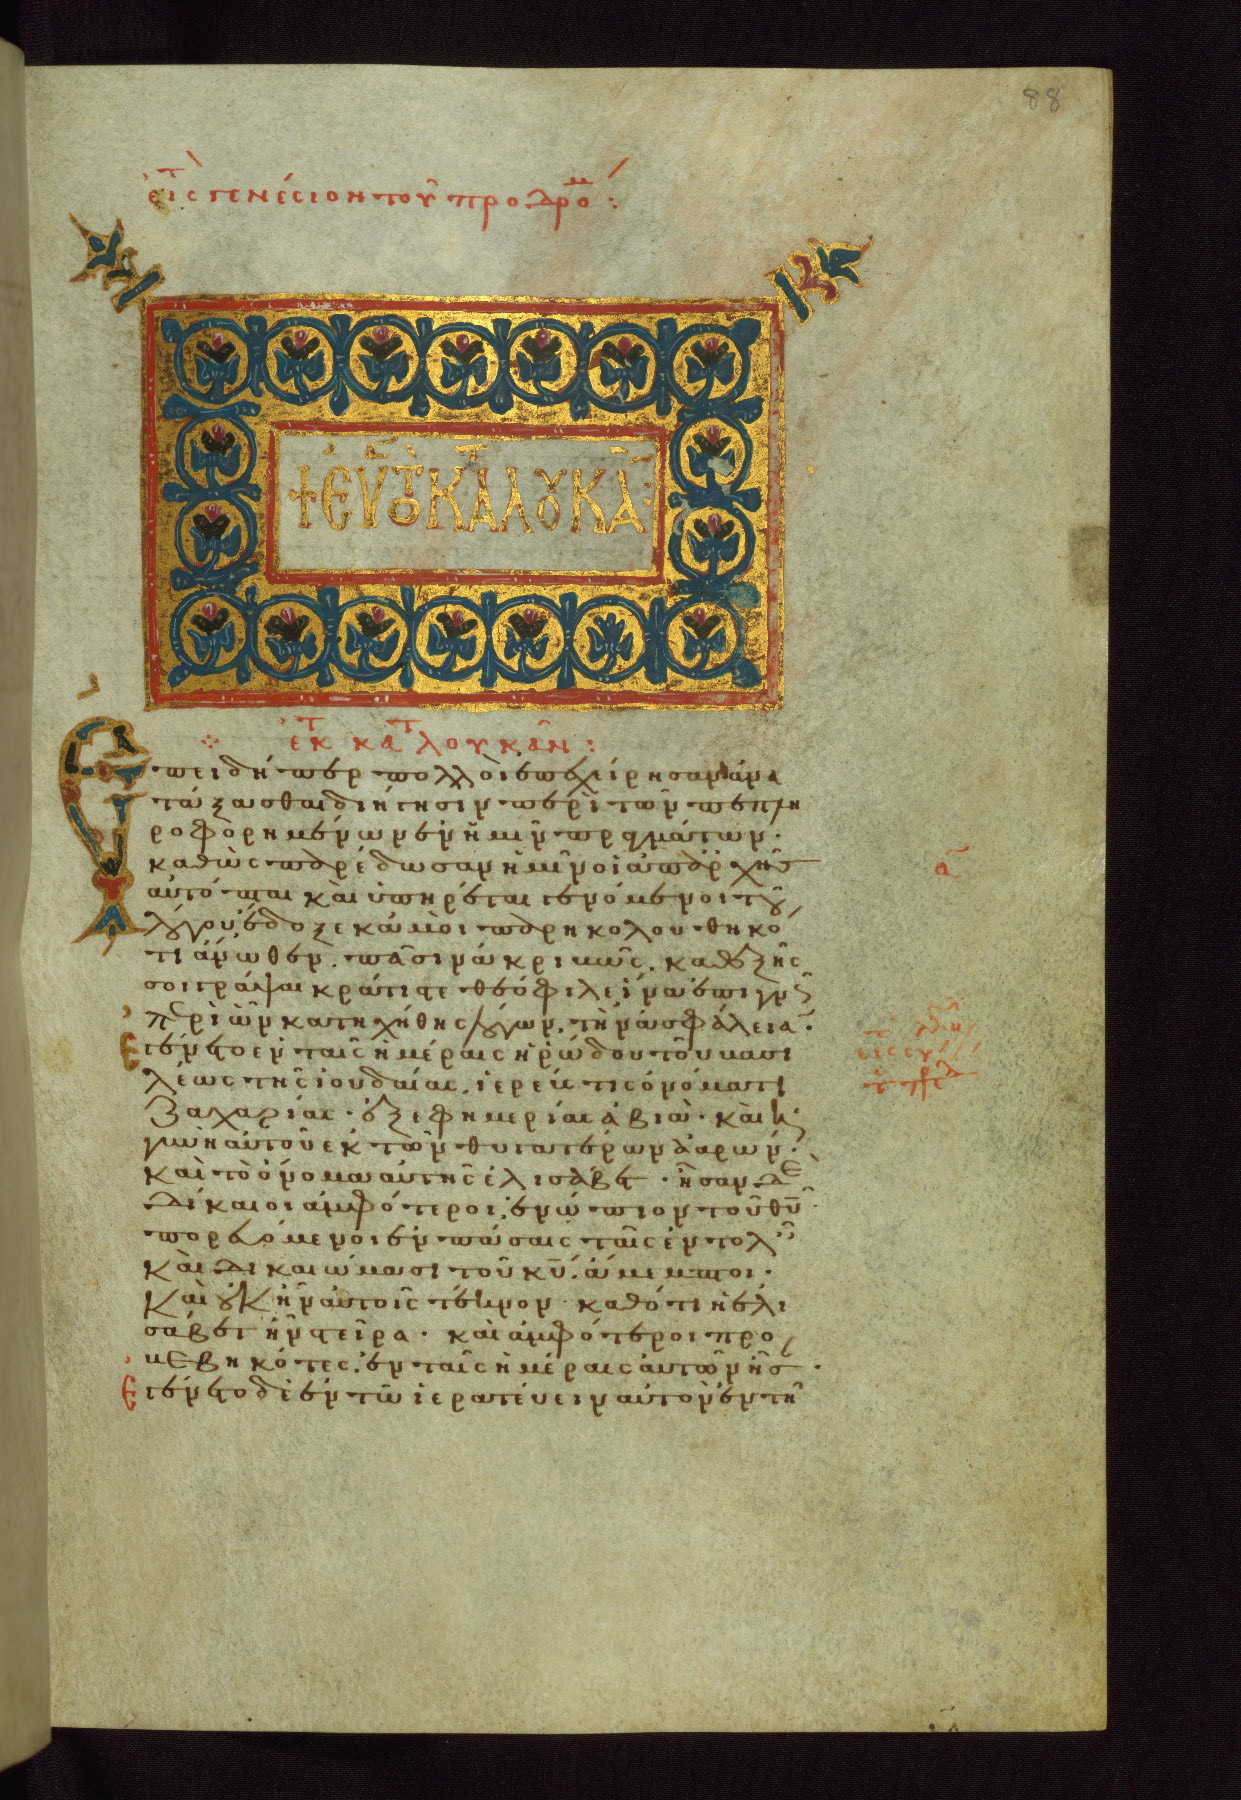 88
εἰς τὸ γενέσιον τοῦ προδρόμ :
+ ΕΥ ΤΟ ΚΑΤ ΛΟΥΚΑΝ
ἐκ τ κατ λουκᾶν :
Ἐπειδήπερ πολλοὶ ἐπεχείρησαν ἀνα
τάξασθαι διήγησιν περὶ τῶν πεπλη
ροφορημένων ἐν ἡμῖν πραγμάτων ·
καθὼς παρέδωσαν ἡμῖν οἱ ἀπαρχῆς
αὐτόπται καὶ ὑπηρέται γενόμενοι τοῦ
λόγου ἔδοξε κἀμοὶ παρηκολουθηκό
τι ἄνωθεν πᾶσιν ἀκριβῶς. καθεξῆς
σοι γράψαι κράτιστε θεόφιλε ἵνα ἐπιγνῶς
περὶ ὧν κατηχήθης λόγων, τὴν ἀσφάλειαν.
Ἐγένετο ἐν ταῖς ἡμέραις ἡρώδου τοῦ βασι
λέως τῆς ἰουδαίας, ἱερεύς τις ὀνόματι
Ζαχαρίας · ἐξ ἐφημερίας ἀβιά · καὶ ἡ
γυνὴ αὐτοῦ ἐκ τῶν θυγατέρων ἀαρών ·
καὶ τὸ ὄνομα αὐτῆς ἐλισάβετ · ἦσαν δὲ
δίκαιοι ἀμφότεροι, ἐνώπιον τοῦ θυ ·
πορευόμενοι ἐν πάσαις ταῖς ἐντολ
καὶ δικαιώμασι τοῦ κυ, ἄμεμπτοι ·
Καὶ οὐκ ἦν αὐτοῖς τέκνον · καθότι ἡ ἐλι
σάβετ ἦν στεῖρα · καὶ ἀμφότεροι προ
βεβηκότες, ἐν ταῖς ἡμέραις αὐτῶν ἦσ ·
Ἐγένετο δὲ ἐν τῶ ἱερατεύειν αὐτὸν ἐν τῆ
α